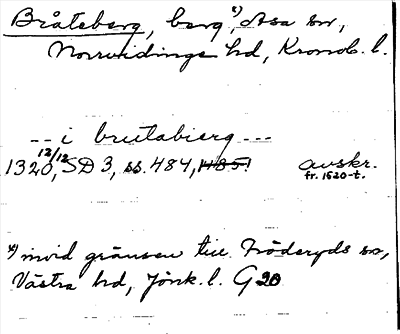 Bråteberg, berg,ˣ⁾ Asa sn,
Norrvidinge hd, Kronob. l.
-- i brutabierg ---
12/12
1320, SD 3, ss. 484, 485! avskr.
fr. 1520-t.
ˣ⁾ invid gränsen till Nöderyds sn,
Västra hd, Jönk. l. G 20